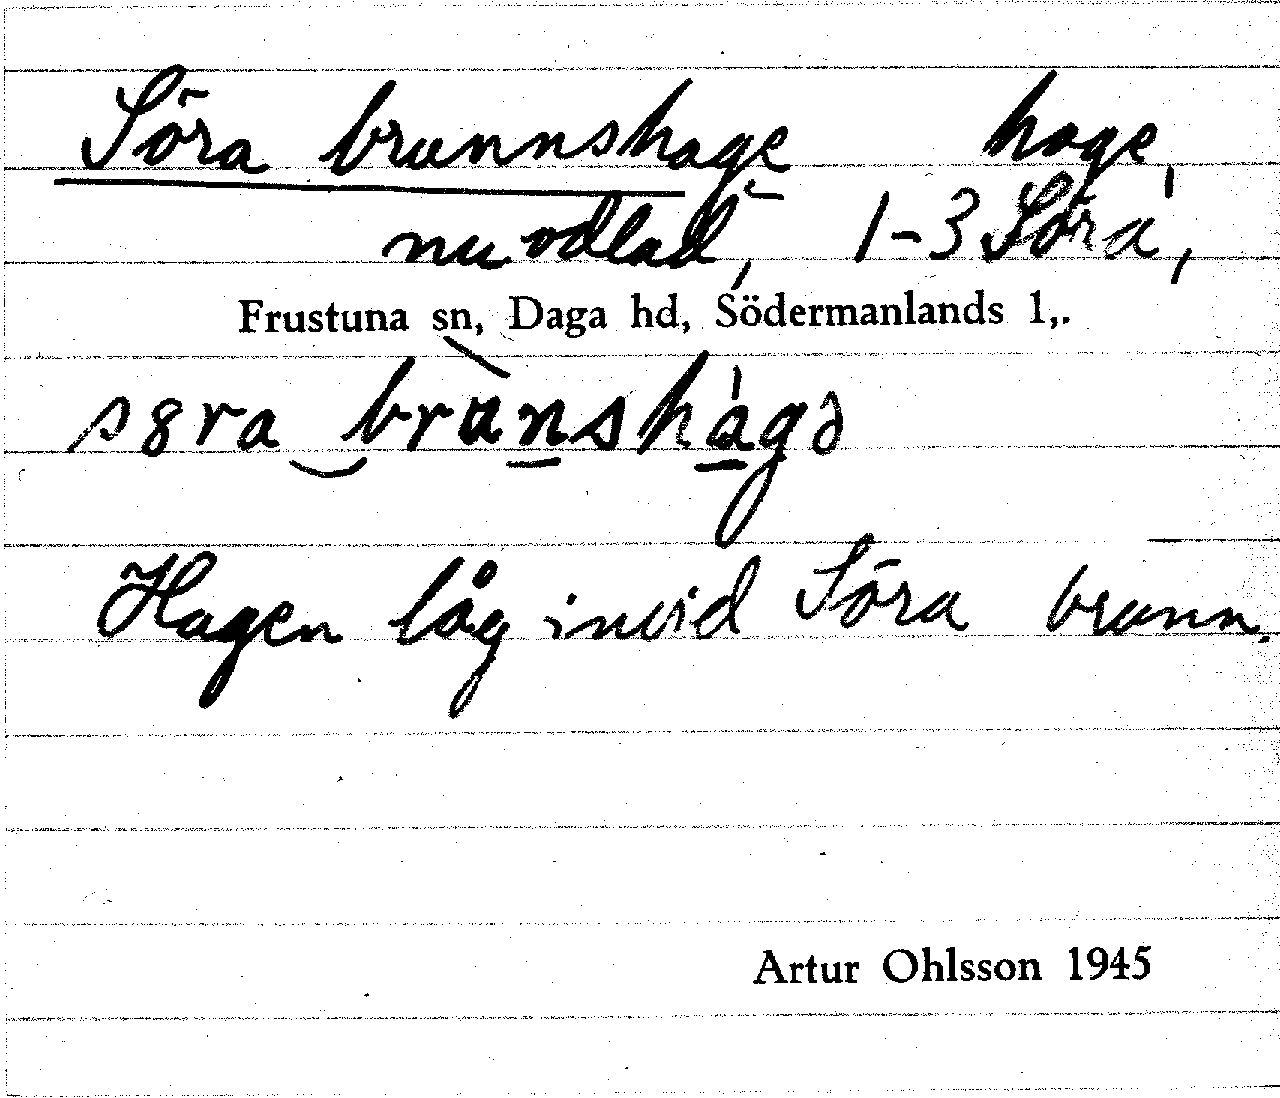 Söra brunnshage hage,
nu odlad, 1-3 Söra,
Frustuna sn, Daga hd, Södermanlands l,.
s8ra brùnshágə
Hagen låg invid Söra brunn.
Artur Ohlsson 1945